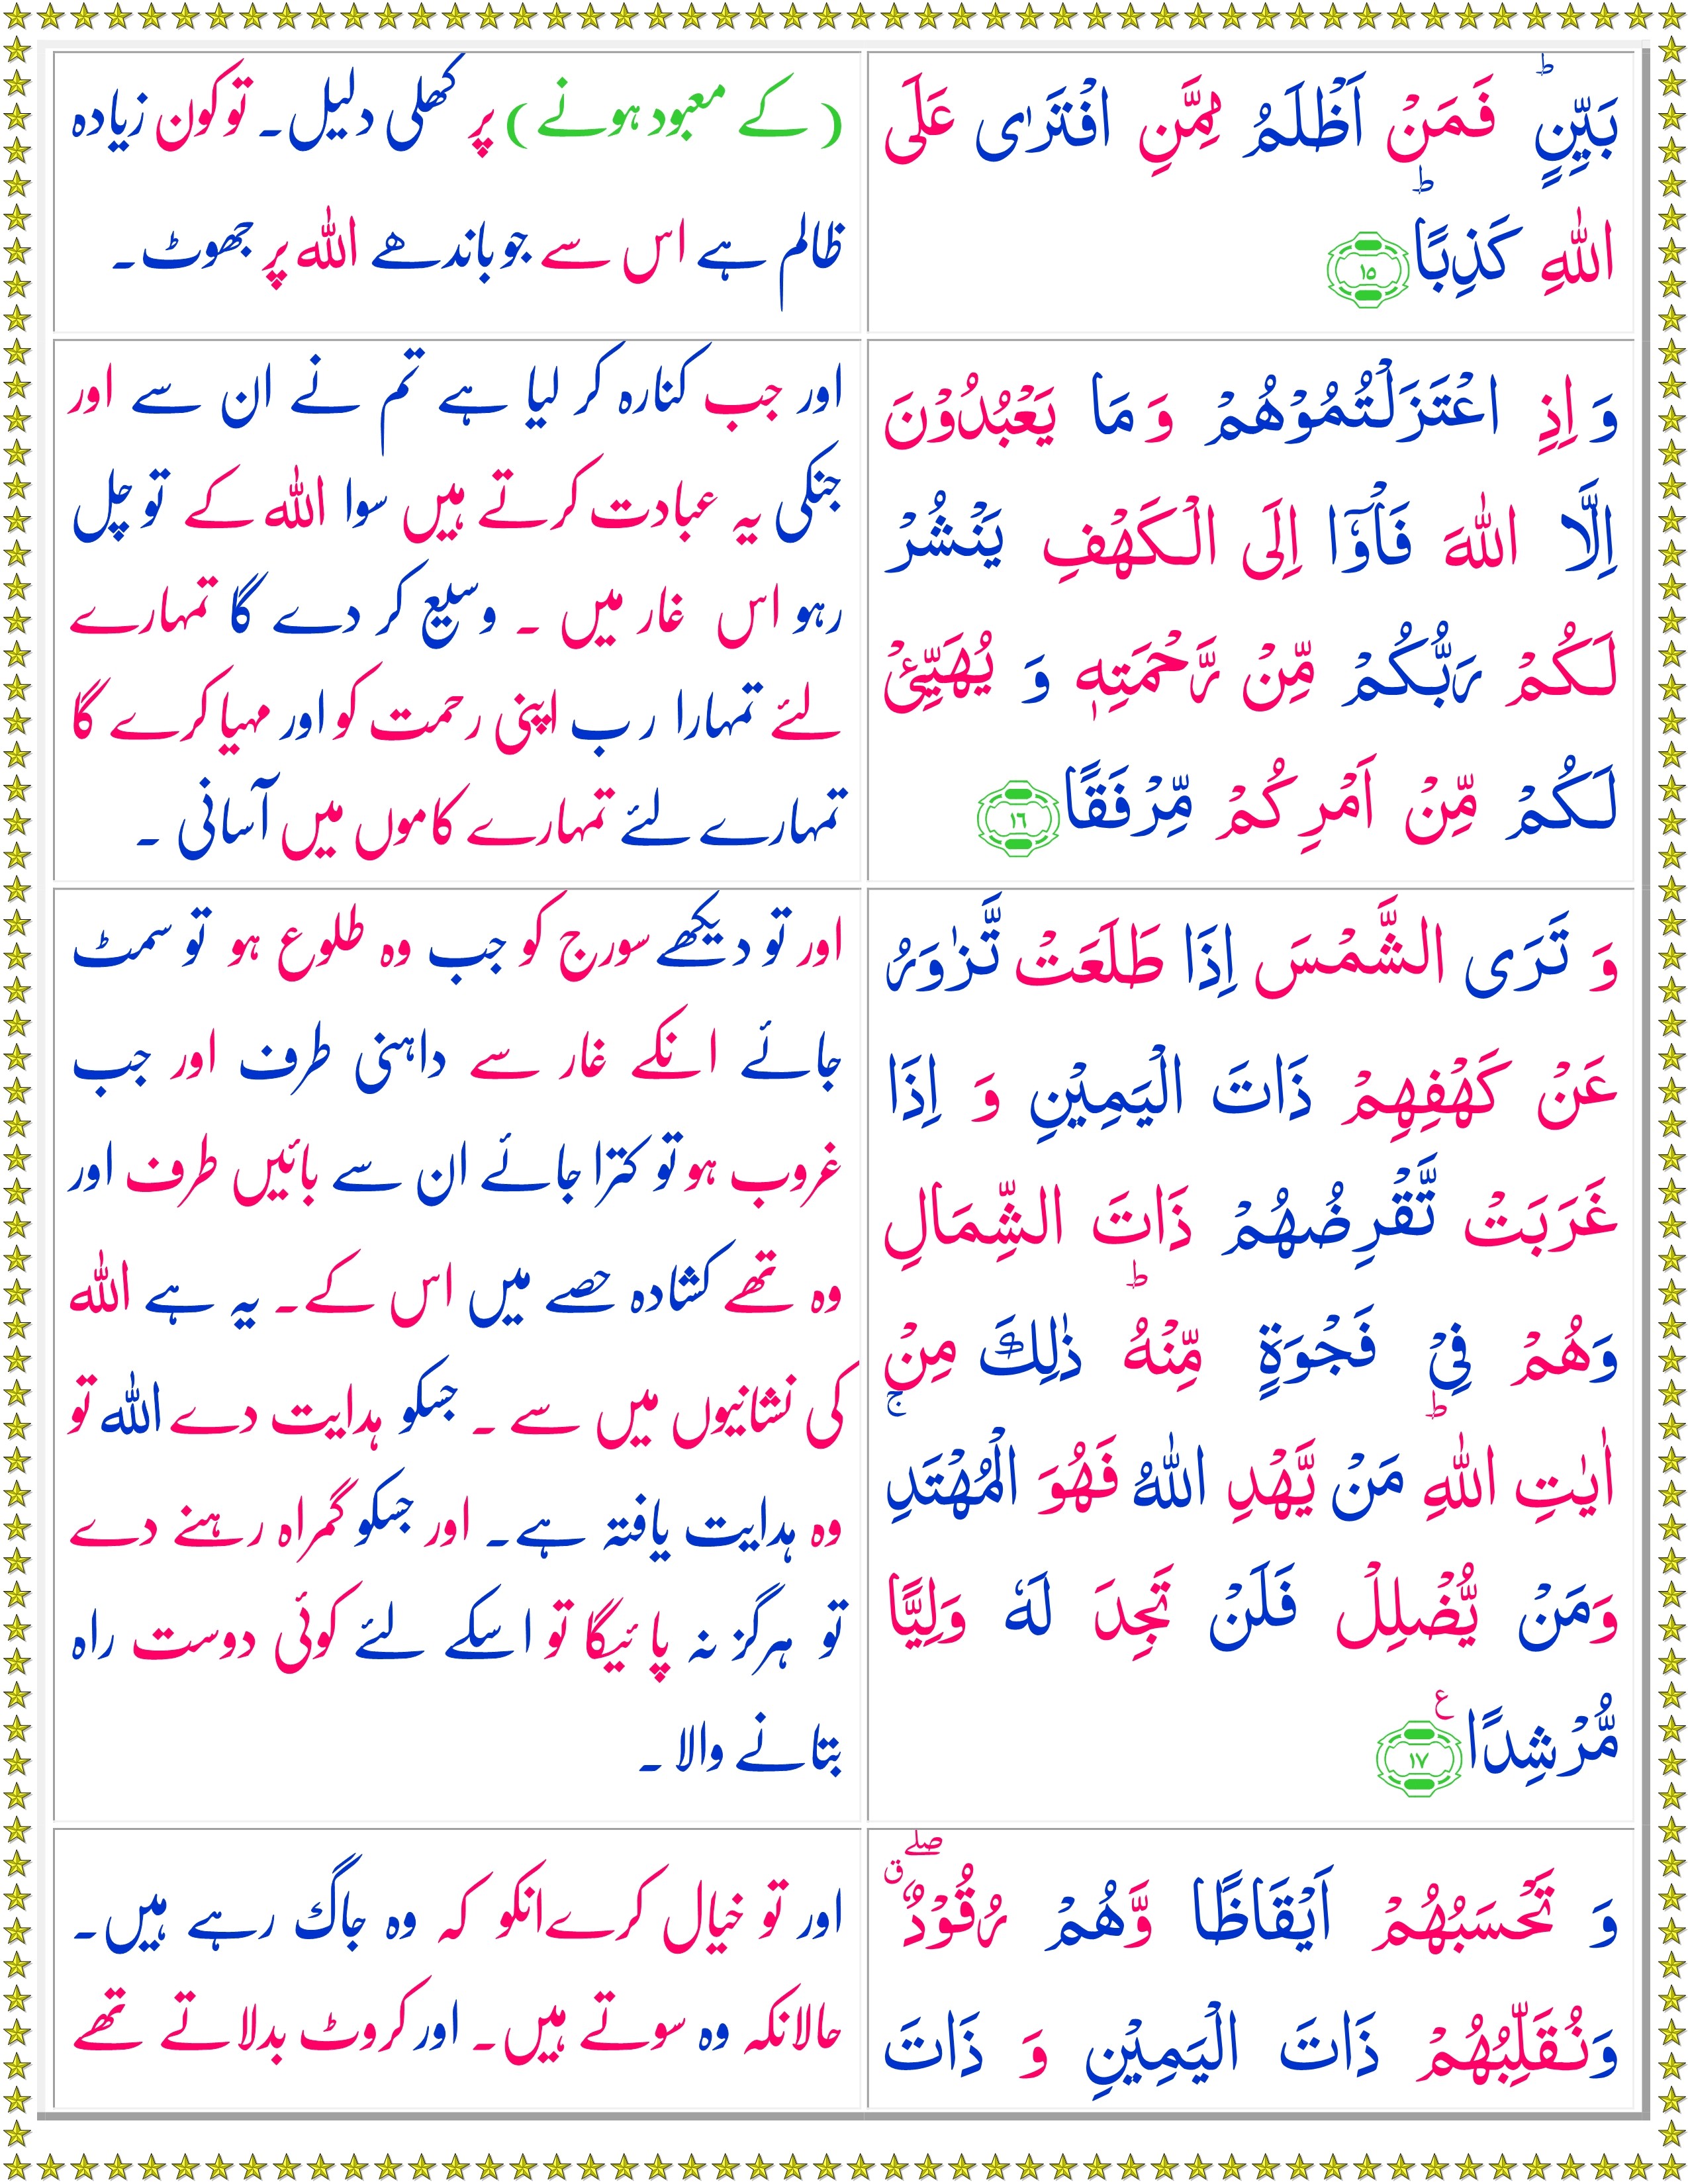 بَيِّنٍ ؕ فَمَنْ اَظْلَمُ مِمَّنِ افْتَرٰى عَلَى
اللّٰهِ كَذِبًا ؕ ﴿۱۵﴾
(کے معبود ہونے) پر کھلی دلیل۔ تو کون زیادہ
ظالم ہے اس سے جو باندھے اللہ پر جھوٹ۔
وَ اِذِ اعْتَزَلْتُمُوْهُمْ وَ مَا يَعْبُدُوْنَ
اِلَّا اللّٰهَ فَاْوٗۤا اِلَى الْكَهْفِ يَنْشُرْ
لَكُمْ رَبُّكُمْ مِّنْ رَّحْمَتِهٖ وَ يُهَيِّئْ
لَكُمْ مِّنْ اَمْرِكُمْ مِّرْفَقًا ﴿۱۶﴾
اور جب کنارہ کر لیا ہے تم نے ان سے اور
جنکی یہ عبادت کرتے ہیں سوا اللہ کے تو چل
رہو اس غار میں ۔ وسیع کر دے گا تمہارے
لئے تمہارا رب اپنی رحمت کو اور مہیا کرے گا
تمہارے لئے تمہارے کاموں میں آسانی ۔
وَ تَرَى الشَّمْسَ اِذَا طَلَعَتْ تَّزٰوَرُ
عَنْ كَهْفِهِمْ ذَاتَ الْيَمِيْنِ وَ اِذَا
غَرَبَتْ تَّقْرِضُهُمْ ذَاتَ الشِّمَالِ
وَهُمْ فِيْ فَجْوَةٍ مِّنْهُ ؕ ذٰلِكَ مِنْ
اٰيٰتِ اللّٰهِ ؕ مَنْ يَّهْدِ اللّٰهُ فَهُوَ الْمُهْتَدِ ۚ
وَمَنْ يُّضْلِلْ فَلَنْ تَجِدَ لَهٗ وَلِيًّا
مُّرْشِدًا ع ﴿۱۷﴾
اور تو دیکھے سورج کو جب وہ طلوع ہو تو سمٹ
جائے انکے غار سے داہنی طرف اور جب
غروب ہو تو کترا جائے ان سے بائیں طرف اور
وہ تھے کشادہ حصے میں اس کے۔ یہ ہے اللہ
کی نشانیوں میں سے ۔ جسکو ہدایت دے اللہ تو
وہ ہدایت یافتہ ہے۔ اور جسکو گمراہ رہنے دے
تو ہرگز نہ پائیگا تو اسکے لئے کوئی دوست راہ
بتانے والا ۔
وَ تَحْسَبُهُمْ اَيْقَاظًا وَّهُمْ رُقُوْدٌ ۖق
وَنُقَلِّبُهُمْ ذَاتَ الْيَمِيْنِ وَ ذَاتَ
اور تو خیال کرے انکو کہ وہ جاگ رہے ہیں۔
حالانکہ وہ سوتے ہیں۔ اور کروٹ بدلاتے تھے